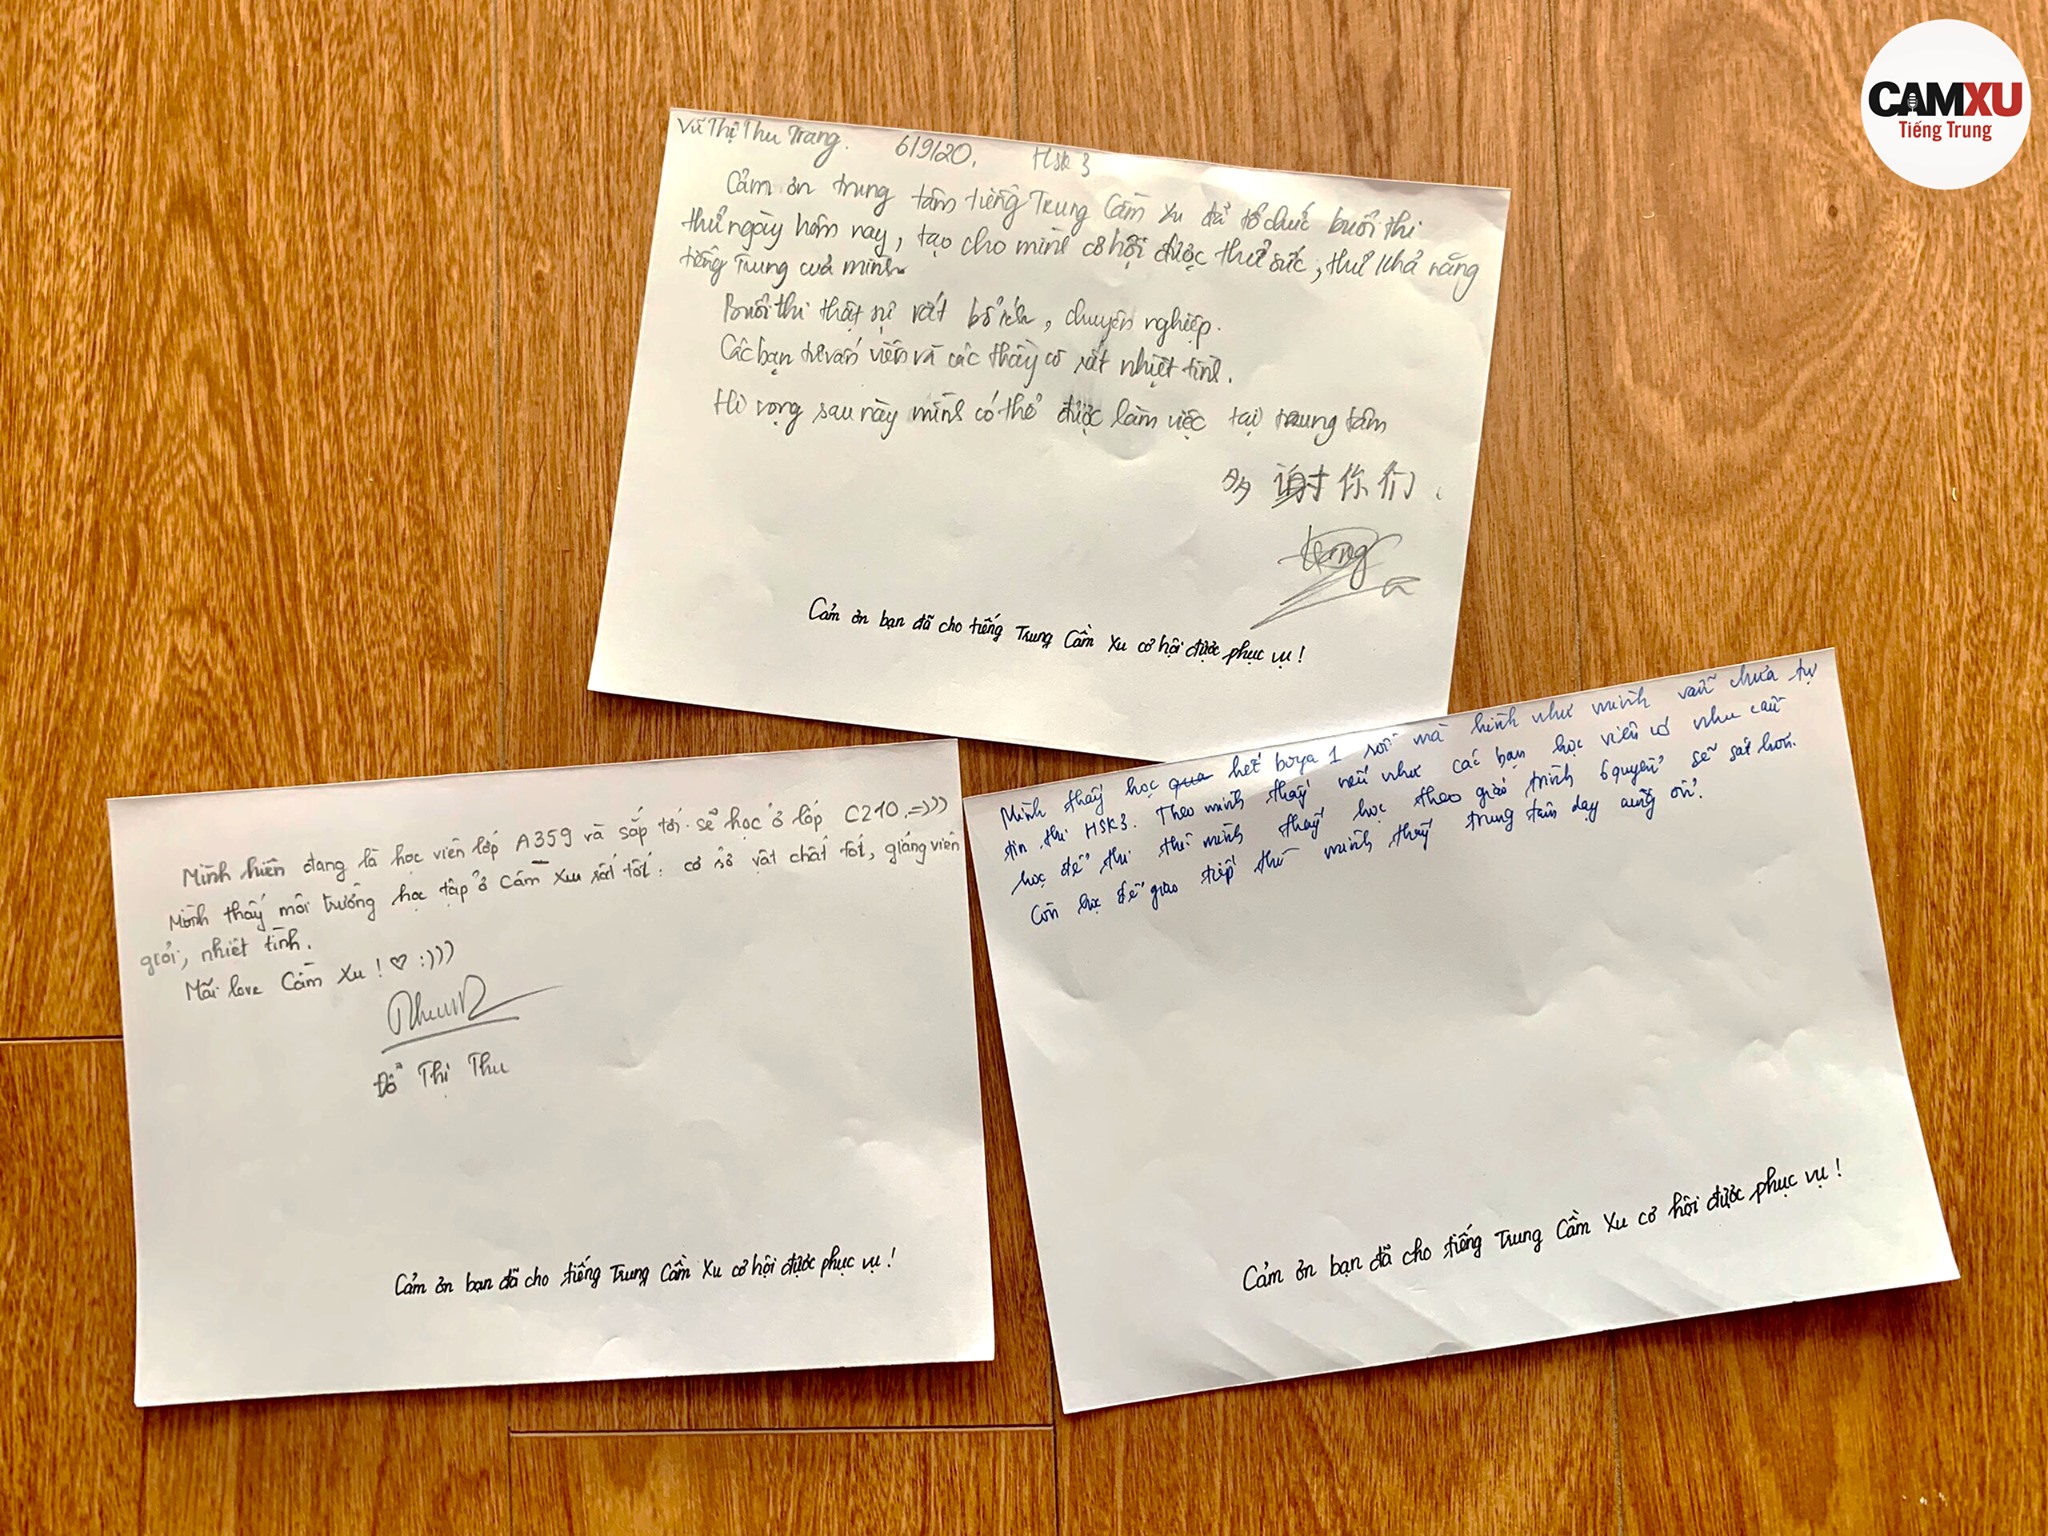 CAMXU
Tiếng Trung
Vũ Thị Thu Trang. 6/9/20. HSK 3
Cảm ơn trung tâm tiếng Trung Cầm Xu đã tổ chức buổi thi
thử ngày hôm nay, tạo cho mình cơ hội được thử sức, thử khả năng
tiếng Trung của mình.
Buổi thi thật sự rất bổ ích, chuyên nghiệp.
Các bạn tư vấn viên và các thầy cô rất nhiệt tình.
Hi vọng sau này mình có thể được làm việc tại trung tâm
多谢你们.
trang
Cảm ơn bạn đã cho tiếng Trung Cầm Xu cơ hội được phục vụ!
Mình hiện đang là học viên lớp A359 và sắp tới sẽ học ở lớp C210.=)))
Mình thấy môi trường học tập ở Cầm Xu rất tốt: cơ sở vật chất tốt, giảng viên
giỏi, nhiệt tình.
Mãi love Cầm Xu! ♡ :)))
Đỗ Thị Thu
Cảm ơn bạn đã cho tiếng Trung Cầm Xu cơ hội được phục vụ!
Mình thấy học qua hết boya 1 rồi mà hình như mình vẫn chưa tự
tin thi HSK3. Theo mình thấy nếu như các bạn học viên có nhu cầu
học để thi thì mình thấy học theo giáo trình 6 quyển sẽ sát hơn.
Còn học để giao tiếp thì mình thấy trung tâm dạy cũng ổn.
Cảm ơn bạn đã cho tiếng Trung Cầm Xu cơ hội được phục vụ!